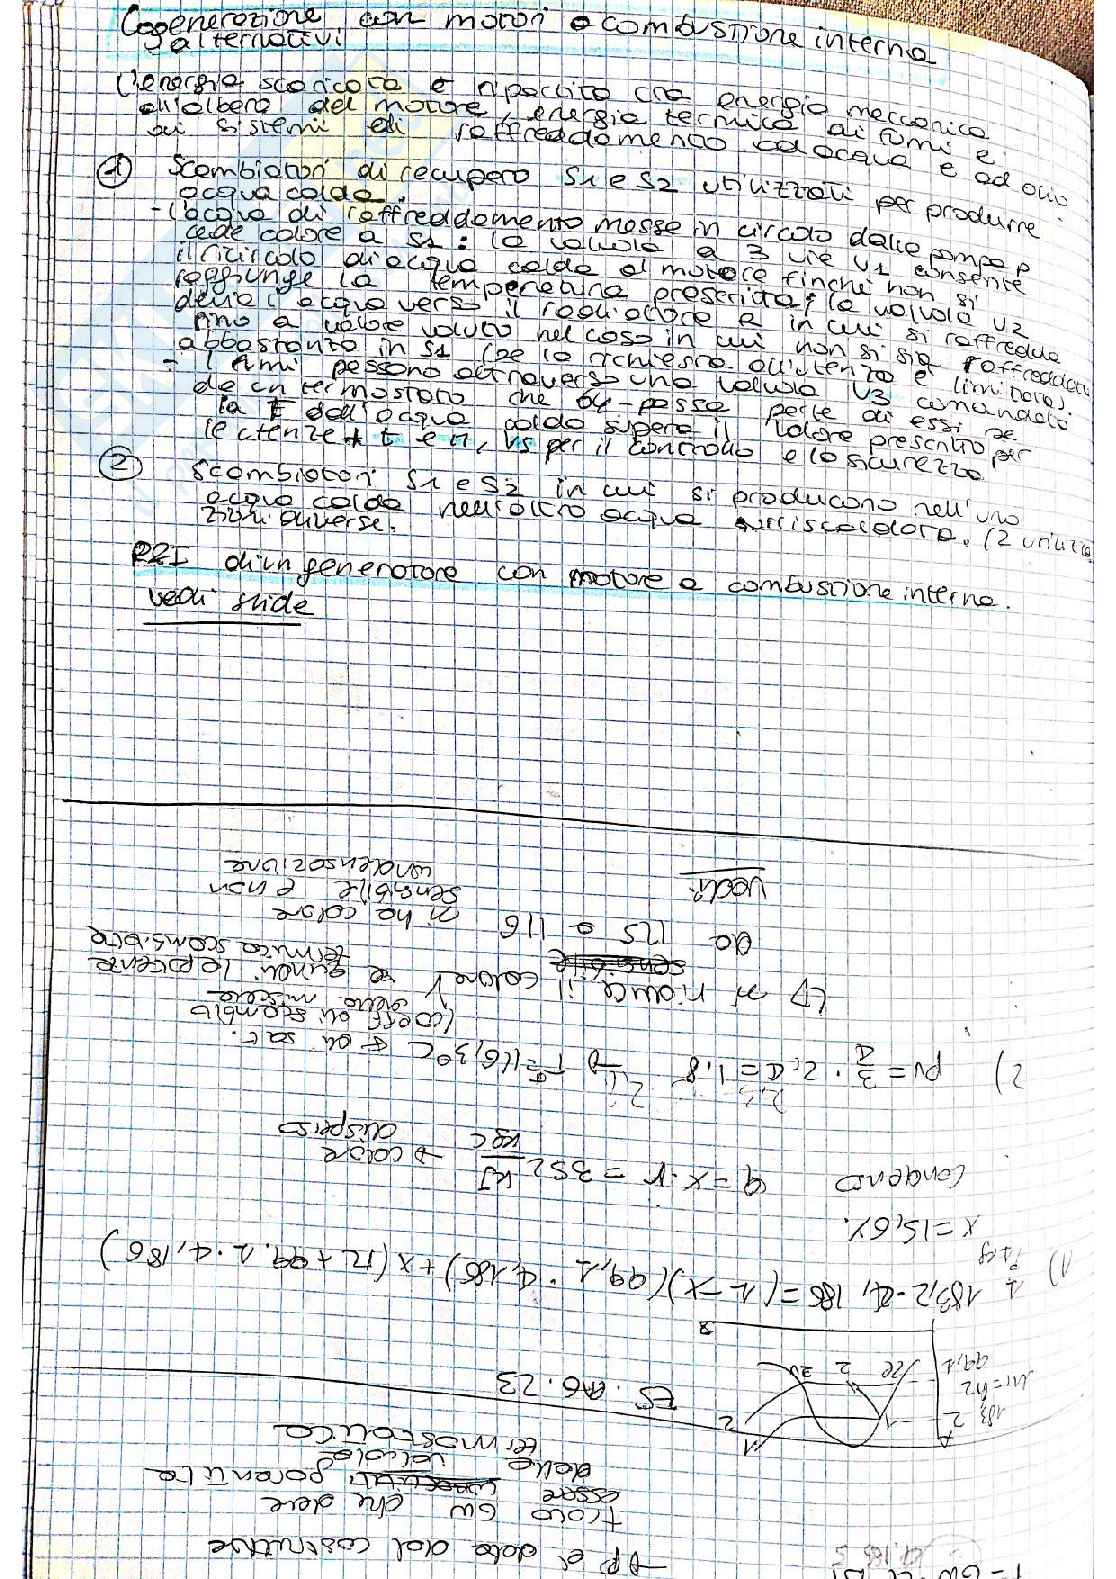 Cogenerazione con motori a combustione interna
alternativi
L'energia scaricata è ripartita tra energia meccanica
all'albero del motore, energia termica ai fumi e
ai sistemi di raffreddamento ad acqua e ad olio.
① Scambiatori di recupero S1 e S2 utilizzati per produrre
acqua calda.
- L'acqua di raffreddamento messa in circolo dalla pompa P
cede calore a S1: la valvola a 3 vie V1 consente
il ricircolo di acqua calda al motore finché non si
raggiunge la temperatura prescritta; la valvola V2
devia l'acqua verso il radiatore R in cui si raffredda
fino a valore voluto nel caso in cui non si sia raffreddata
abbastanza in S1 (se la richiesta all'utenza è limitata).
- I fumi passano attraverso una valvola V3 comandata
da un termostato che by-passa parte di essi se
la T dell'acqua calda supera il valore prescritto per
le utenze. t e M, VS per il controllo e la sicurezza
② Scambiatori S1 e S2 in cui si producono nell'uno
acqua calda nell'altro acqua surriscaldata. (2 utilizza
zioni diverse.
di un generatore con motore a combustione interna.
vedi slide
→ P è dato dal costruttore
trovo GW che deve
essere garantita
dalla valvola
termostatica
ES. 06.23
1
2
183,2
h1=h2
99,2
1) 183,2 · 4,186 = (1-x)(99,2 · 4,186) + x(r2 + 99,2 · 4,186)
x = 15,6%
Condenso q = x · r = 352 kJ/kg°C → calore
disperso
2) pv = 3/4 · 2,4 = 1,8 → T = 116,3°C
T di sat.
↳ riduce il calore e quindi la potenze
termica scambiata
(coeff di scambio
da 125 a 116
calore
sensibile e non
condensazione
vedi